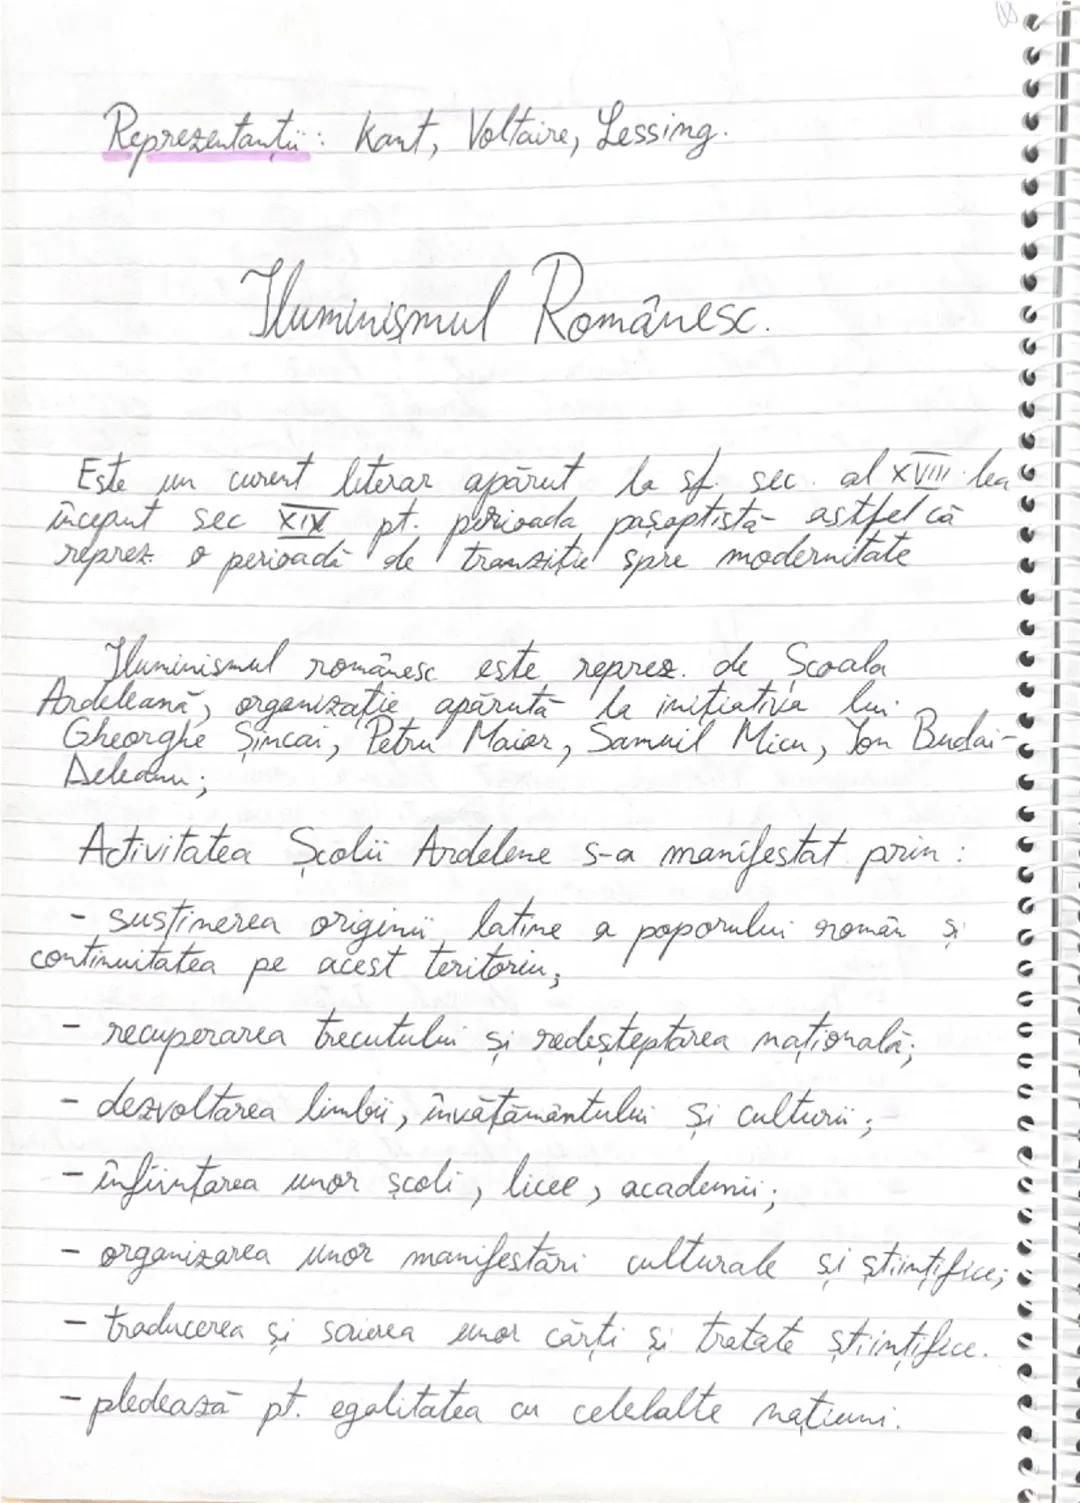 Reprezentanții: Kant, Voltaire, Lessing.
Iluminismul Românesc.
Este un curent literar apărut la sf. sec. al XVIII lea
început sec XIX pt. perioada pașoptistă astfel că
reprez. o perioadă de tranziție spre modernitate
Iluminismul românesc este reprez. de Școala
Ardeleană, organizație apărută la inițiativa lui
Gheorghe Șincai, Petru Maior, Samuil Micu, Ion Budai-
Deleanu;
Activitatea Școlii Ardelene s-a manifestat prin:
- susținerea originii latine a poporului român și
continuitatea pe acest teritoriu;
- recuperarea trecutului și redeșteptarea națională;
- dezvoltarea limbii, învățământului și culturii;
- înființarea unor școli, licee, academii;
- organizarea unor manifestări culturale și științifice;
- traducerea și scrierea unor cărți și tratate științifice.
- pledează pt. egalitatea cu celelalte națiuni.